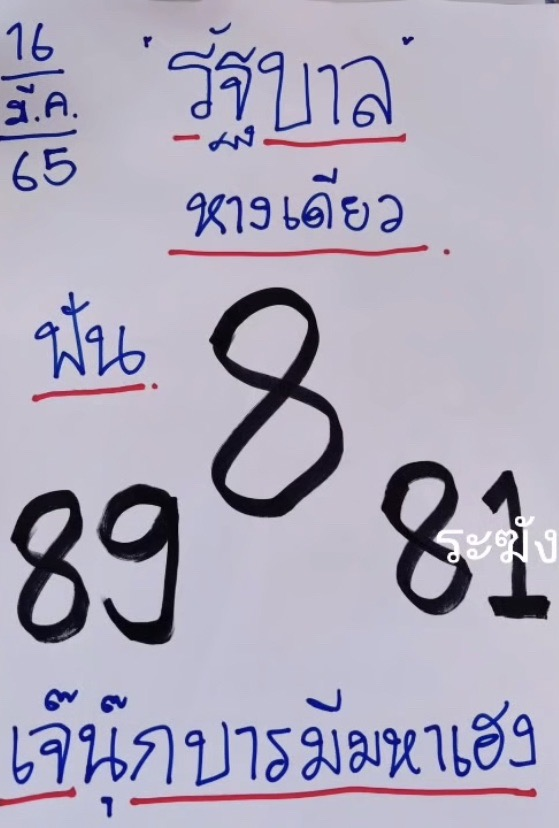 16
มี.ค.
65
"รัฐบาล"
หางเดียว
ฟัน
8
89
81
ระฆัง
เจ๊นุ๊กบารมีมหาเฮง